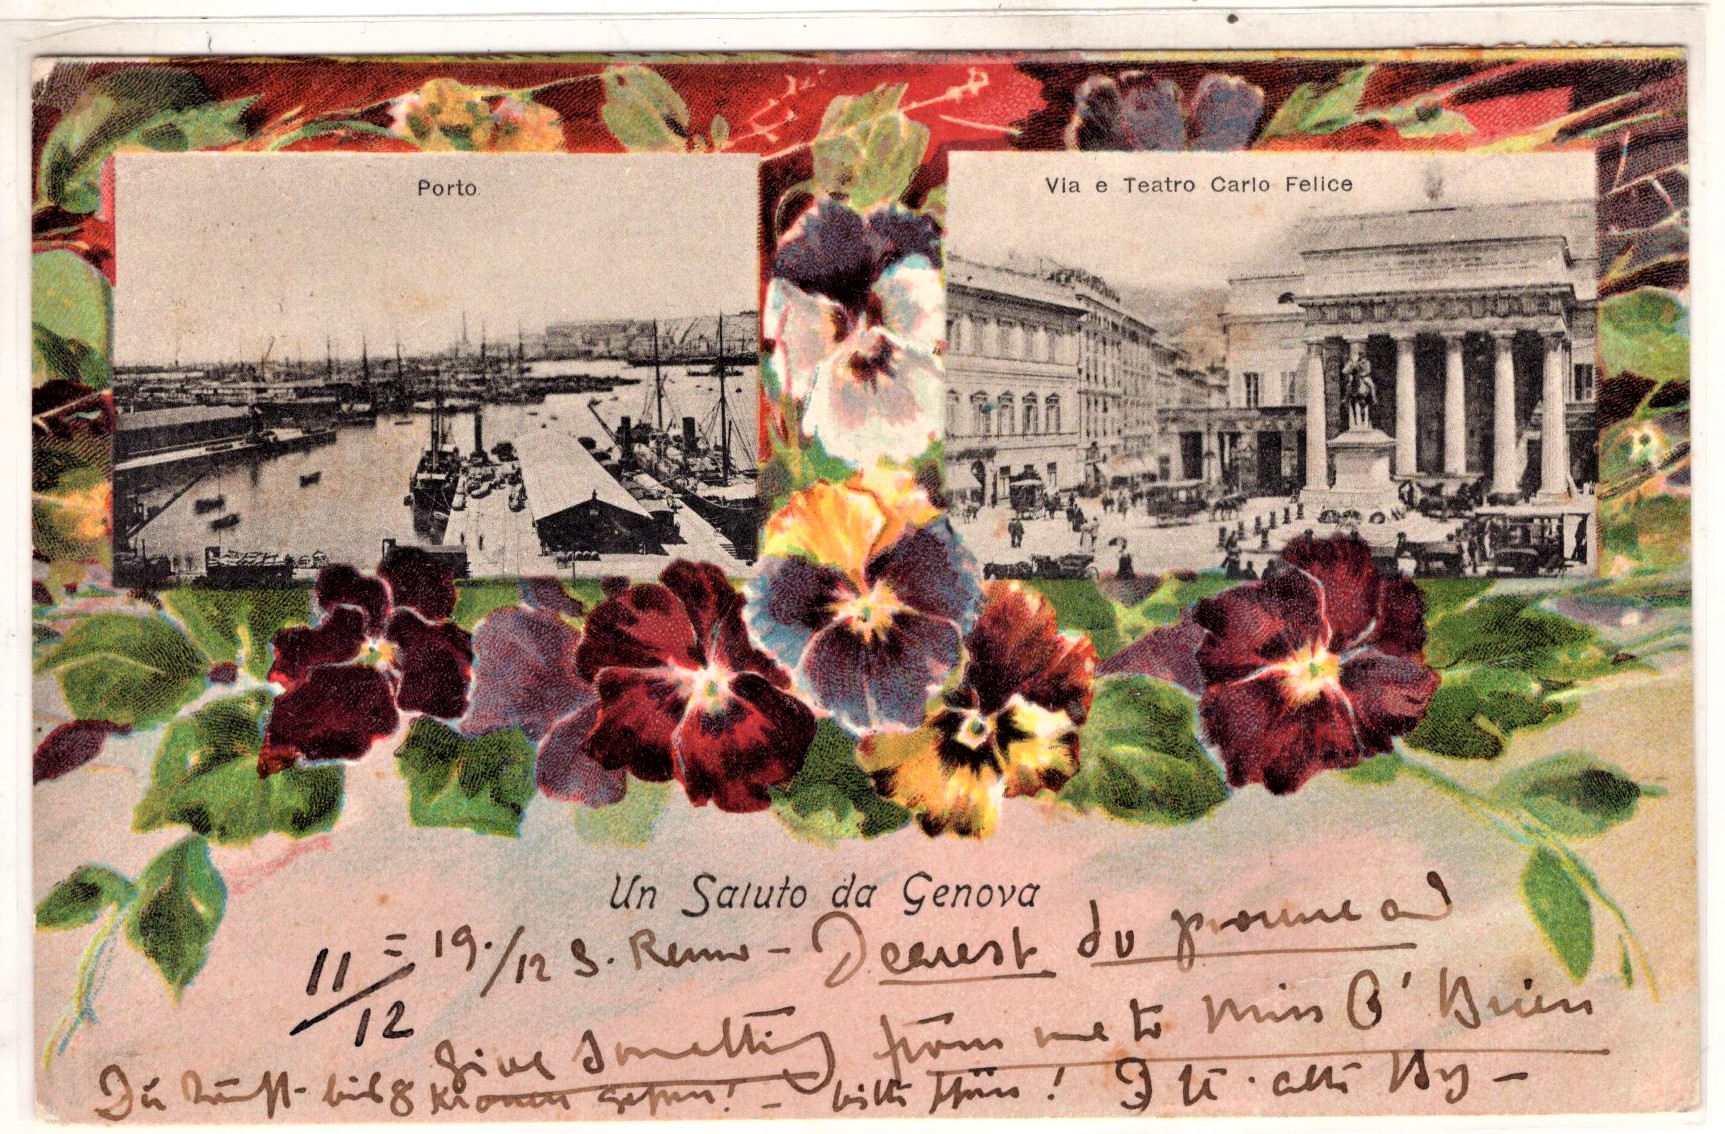 Porto
Via e Teatro Carlo Felice
Un Saluto da Genova
11/12 = 19./12 S. Remo - Dearest do procure and
give something from me to Miss O'Brien
Du bis 8 Kronen gehen! - bitte thus! Dein alte